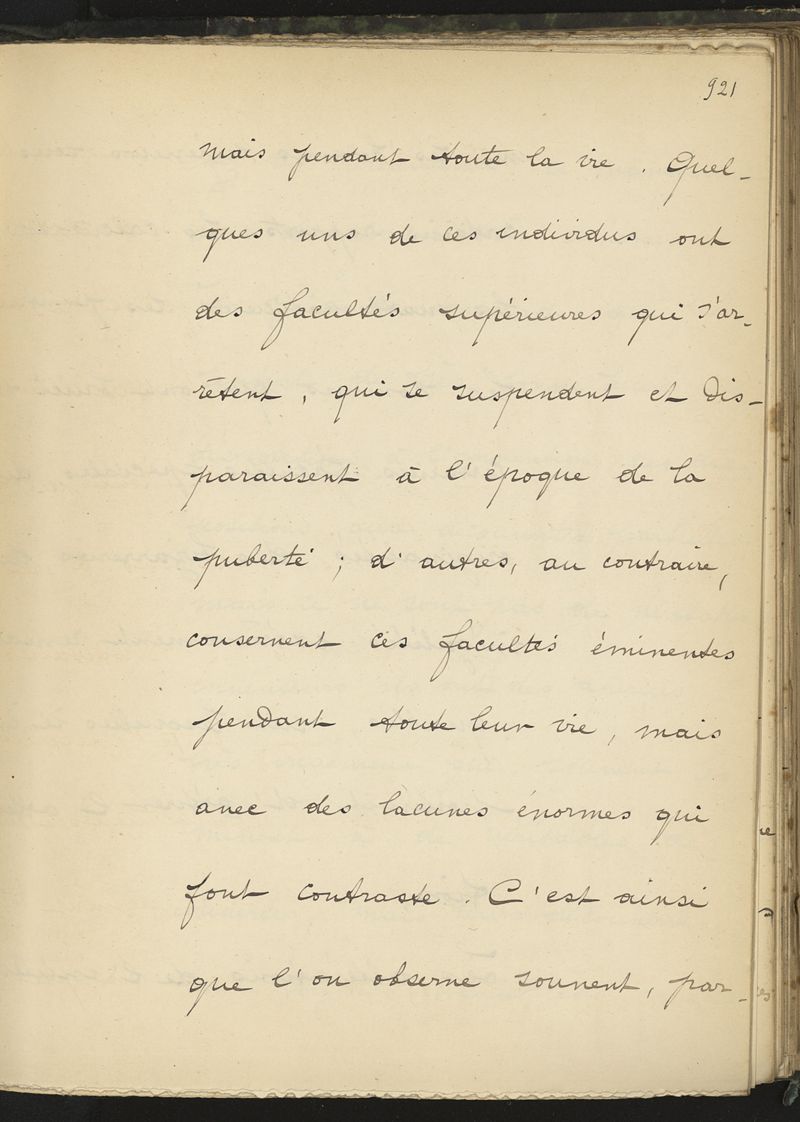 921
mais pendant toute la vie. Quel-
ques uns de ces individus ont
des facultés supérieures qui s'ar-
rêtent, qui se suspendent et dis-
paraissent à l'époque de la
puberté ; d'autres, au contraire,
conservent ces facultés éminentes
pendant toute leur vie, mais
avec des lacunes énormes qui
font contraste. C'est ainsi
que l'on observe souvent, par-